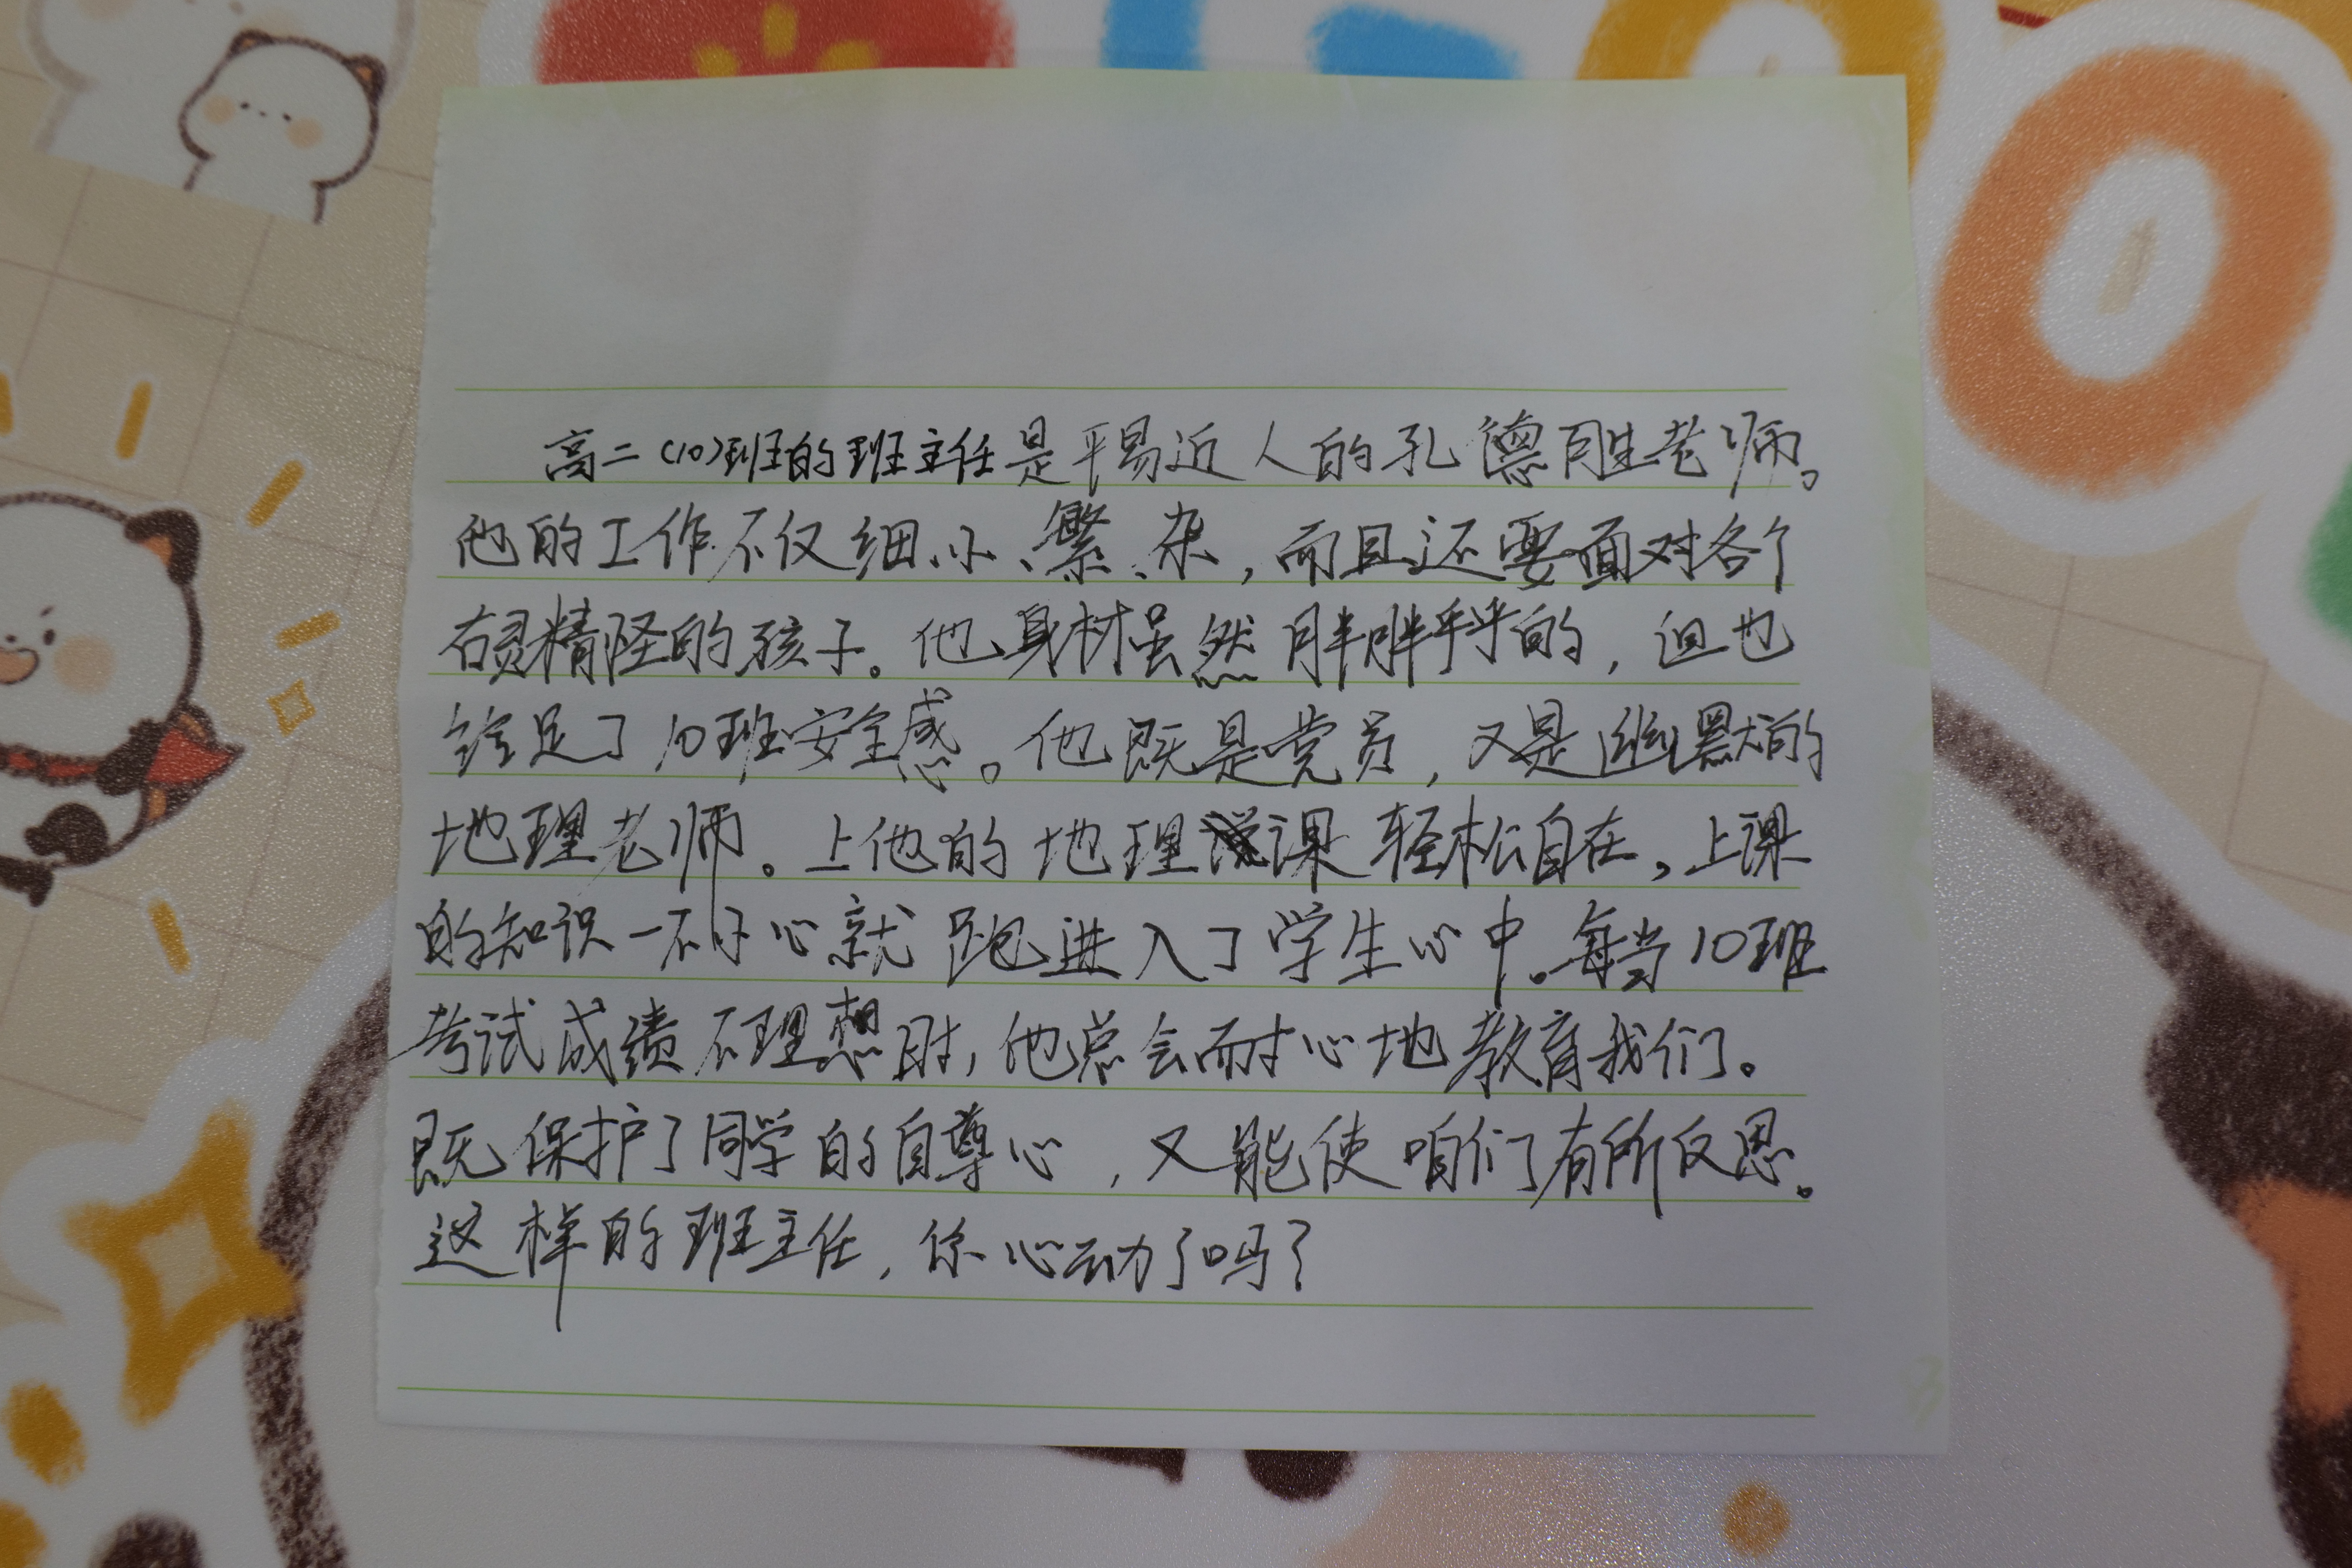 高二(10)班的班主任是平易近人的孔德胜老师。
他的工作不仅细小、繁、杂,而且还要面对各个
古灵精怪的孩子。他身材虽然胖胖乎乎的,但也
给足了10班安全感。他既是党员,又是幽默的
地理老师。上他的地理课轻松自在,上课
的知识一不小心就跑进入了学生心中。每当10班
考试成绩不理想时,他总会耐心地教育我们。
既保护了同学的自尊心,又能使咱们有所反思。
这样的班主任,你心动了吗?